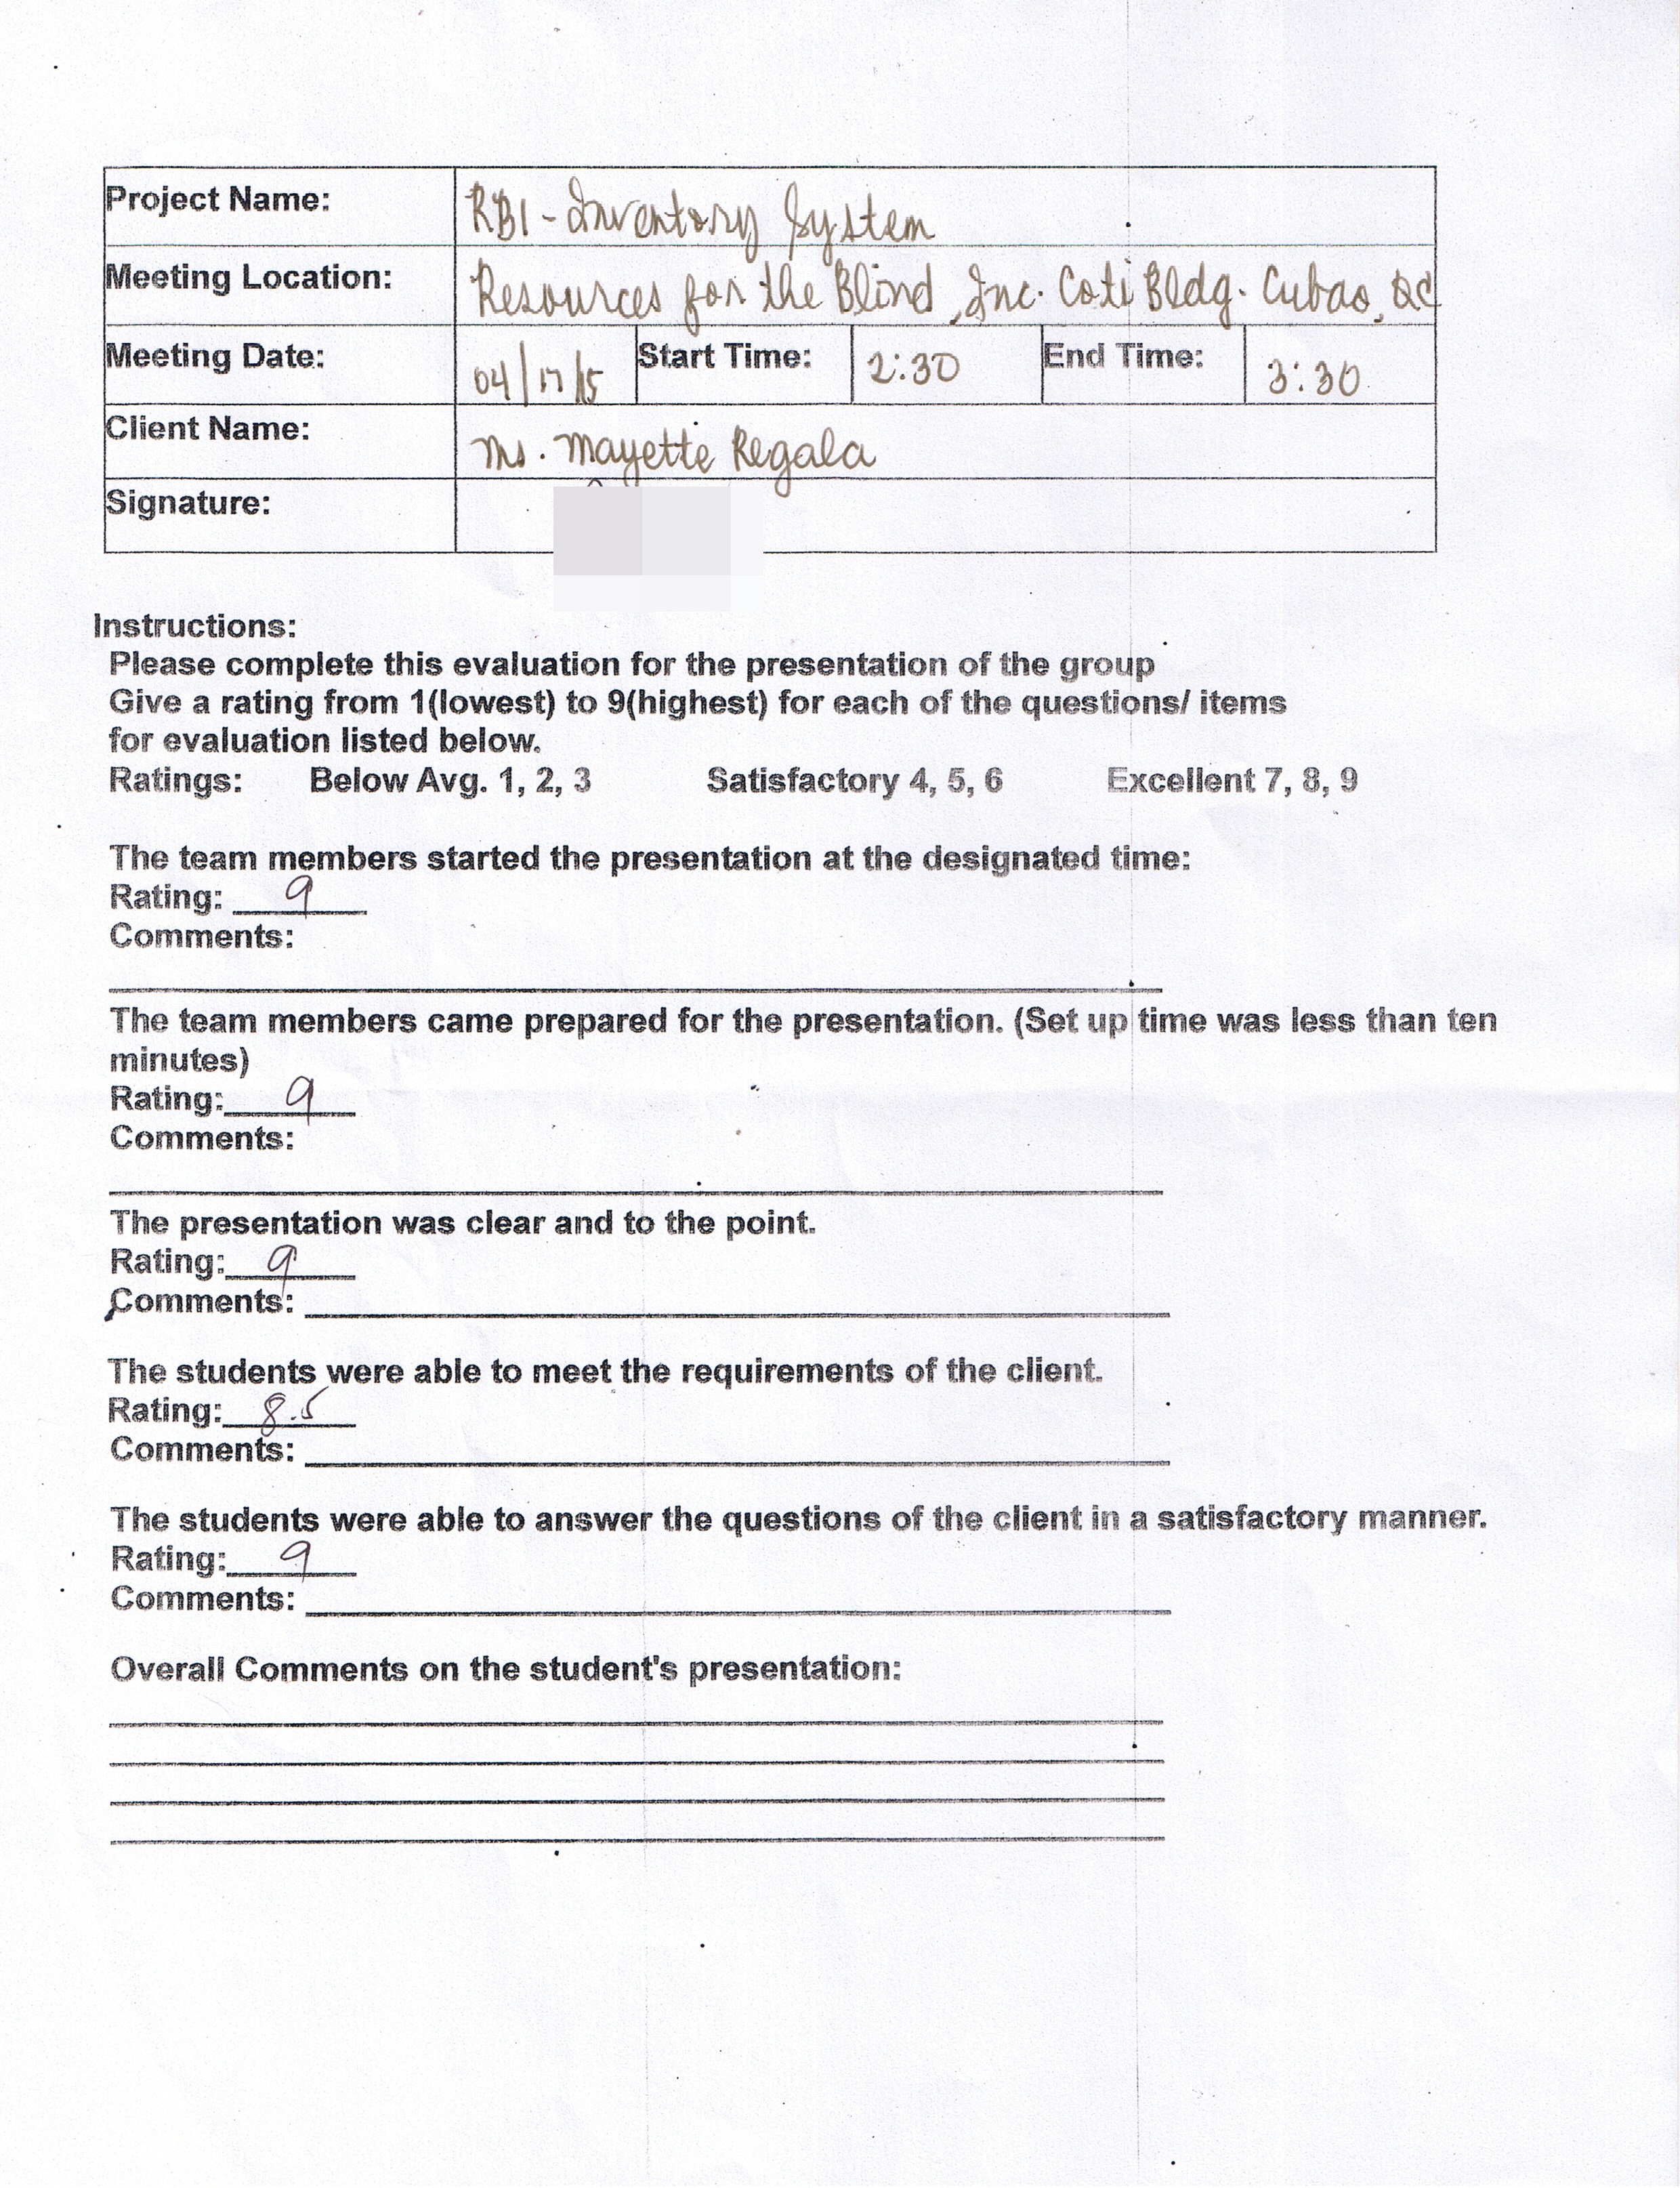 Project Name: RBI - Inventory System
Meeting Location: Resources for the Blind, Inc. Coti Bldg. Cubao, QC
Meeting Date: 04/17/15 Start Time: 2:30 End Time: 3:30
Client Name: Ms. Mayette Regala
Signature:
Instructions:
Please complete this evaluation for the presentation of the group
Give a rating from 1(lowest) to 9(highest) for each of the questions/ items
for evaluation listed below.
Ratings: Below Avg. 1, 2, 3 Satisfactory 4, 5, 6 Excellent 7, 8, 9
The team members started the presentation at the designated time:
Rating: 9
Comments:
The team members came prepared for the presentation. (Set up time was less than ten
minutes)
Rating: 9
Comments:
The presentation was clear and to the point.
Rating: 9
Comments:
The students were able to meet the requirements of the client.
Rating: 8.5
Comments:
The students were able to answer the questions of the client in a satisfactory manner.
Rating: 9
Comments:
Overall Comments on the student's presentation: